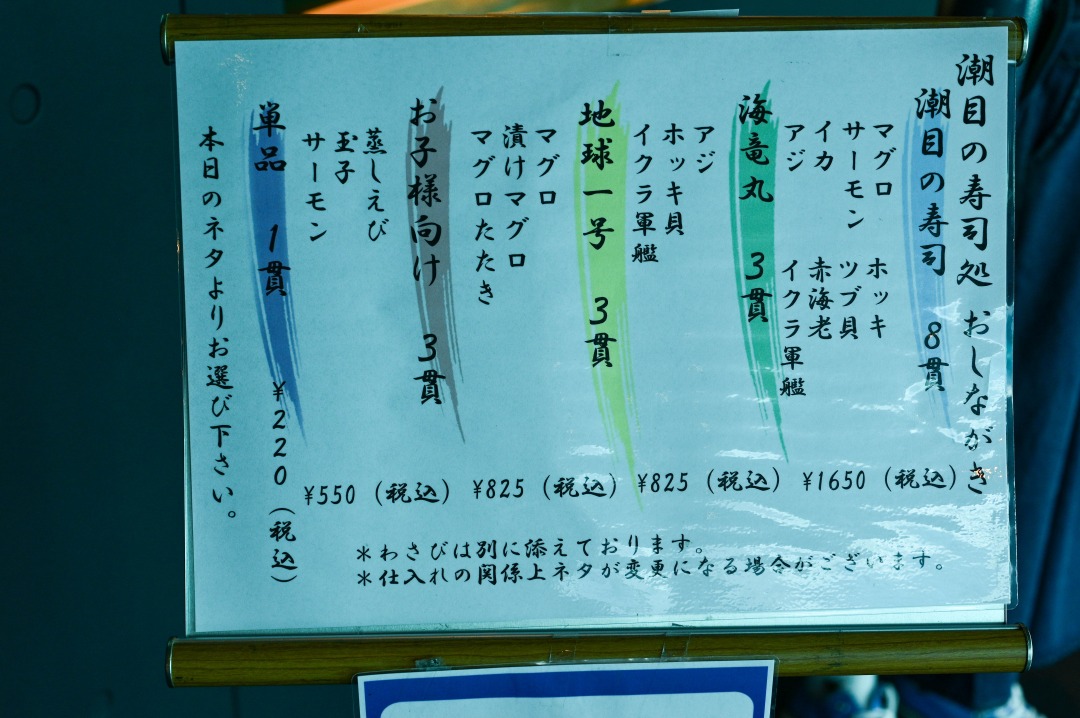 潮目の寿司処 おしながき
潮目の寿司 8貫
マグロ ホッキ
サーモン ツブ貝
イカ 赤海老
アジ イクラ軍艦
¥1650（税込）
海竜丸 3貫
アジ
ホッキ貝
イクラ軍艦
¥825（税込）
地球一号 3貫
マグロ
漬けマグロ
マグロたたき
¥825（税込）
お子様向け 3貫
蒸しえび
玉子
サーモン
¥550（税込）
単品 1貫 ¥220（税込）
本日のネタよりお選び下さい。
＊わさびは別に添えております。
＊仕入れの関係上ネタが変更になる場合がございます。